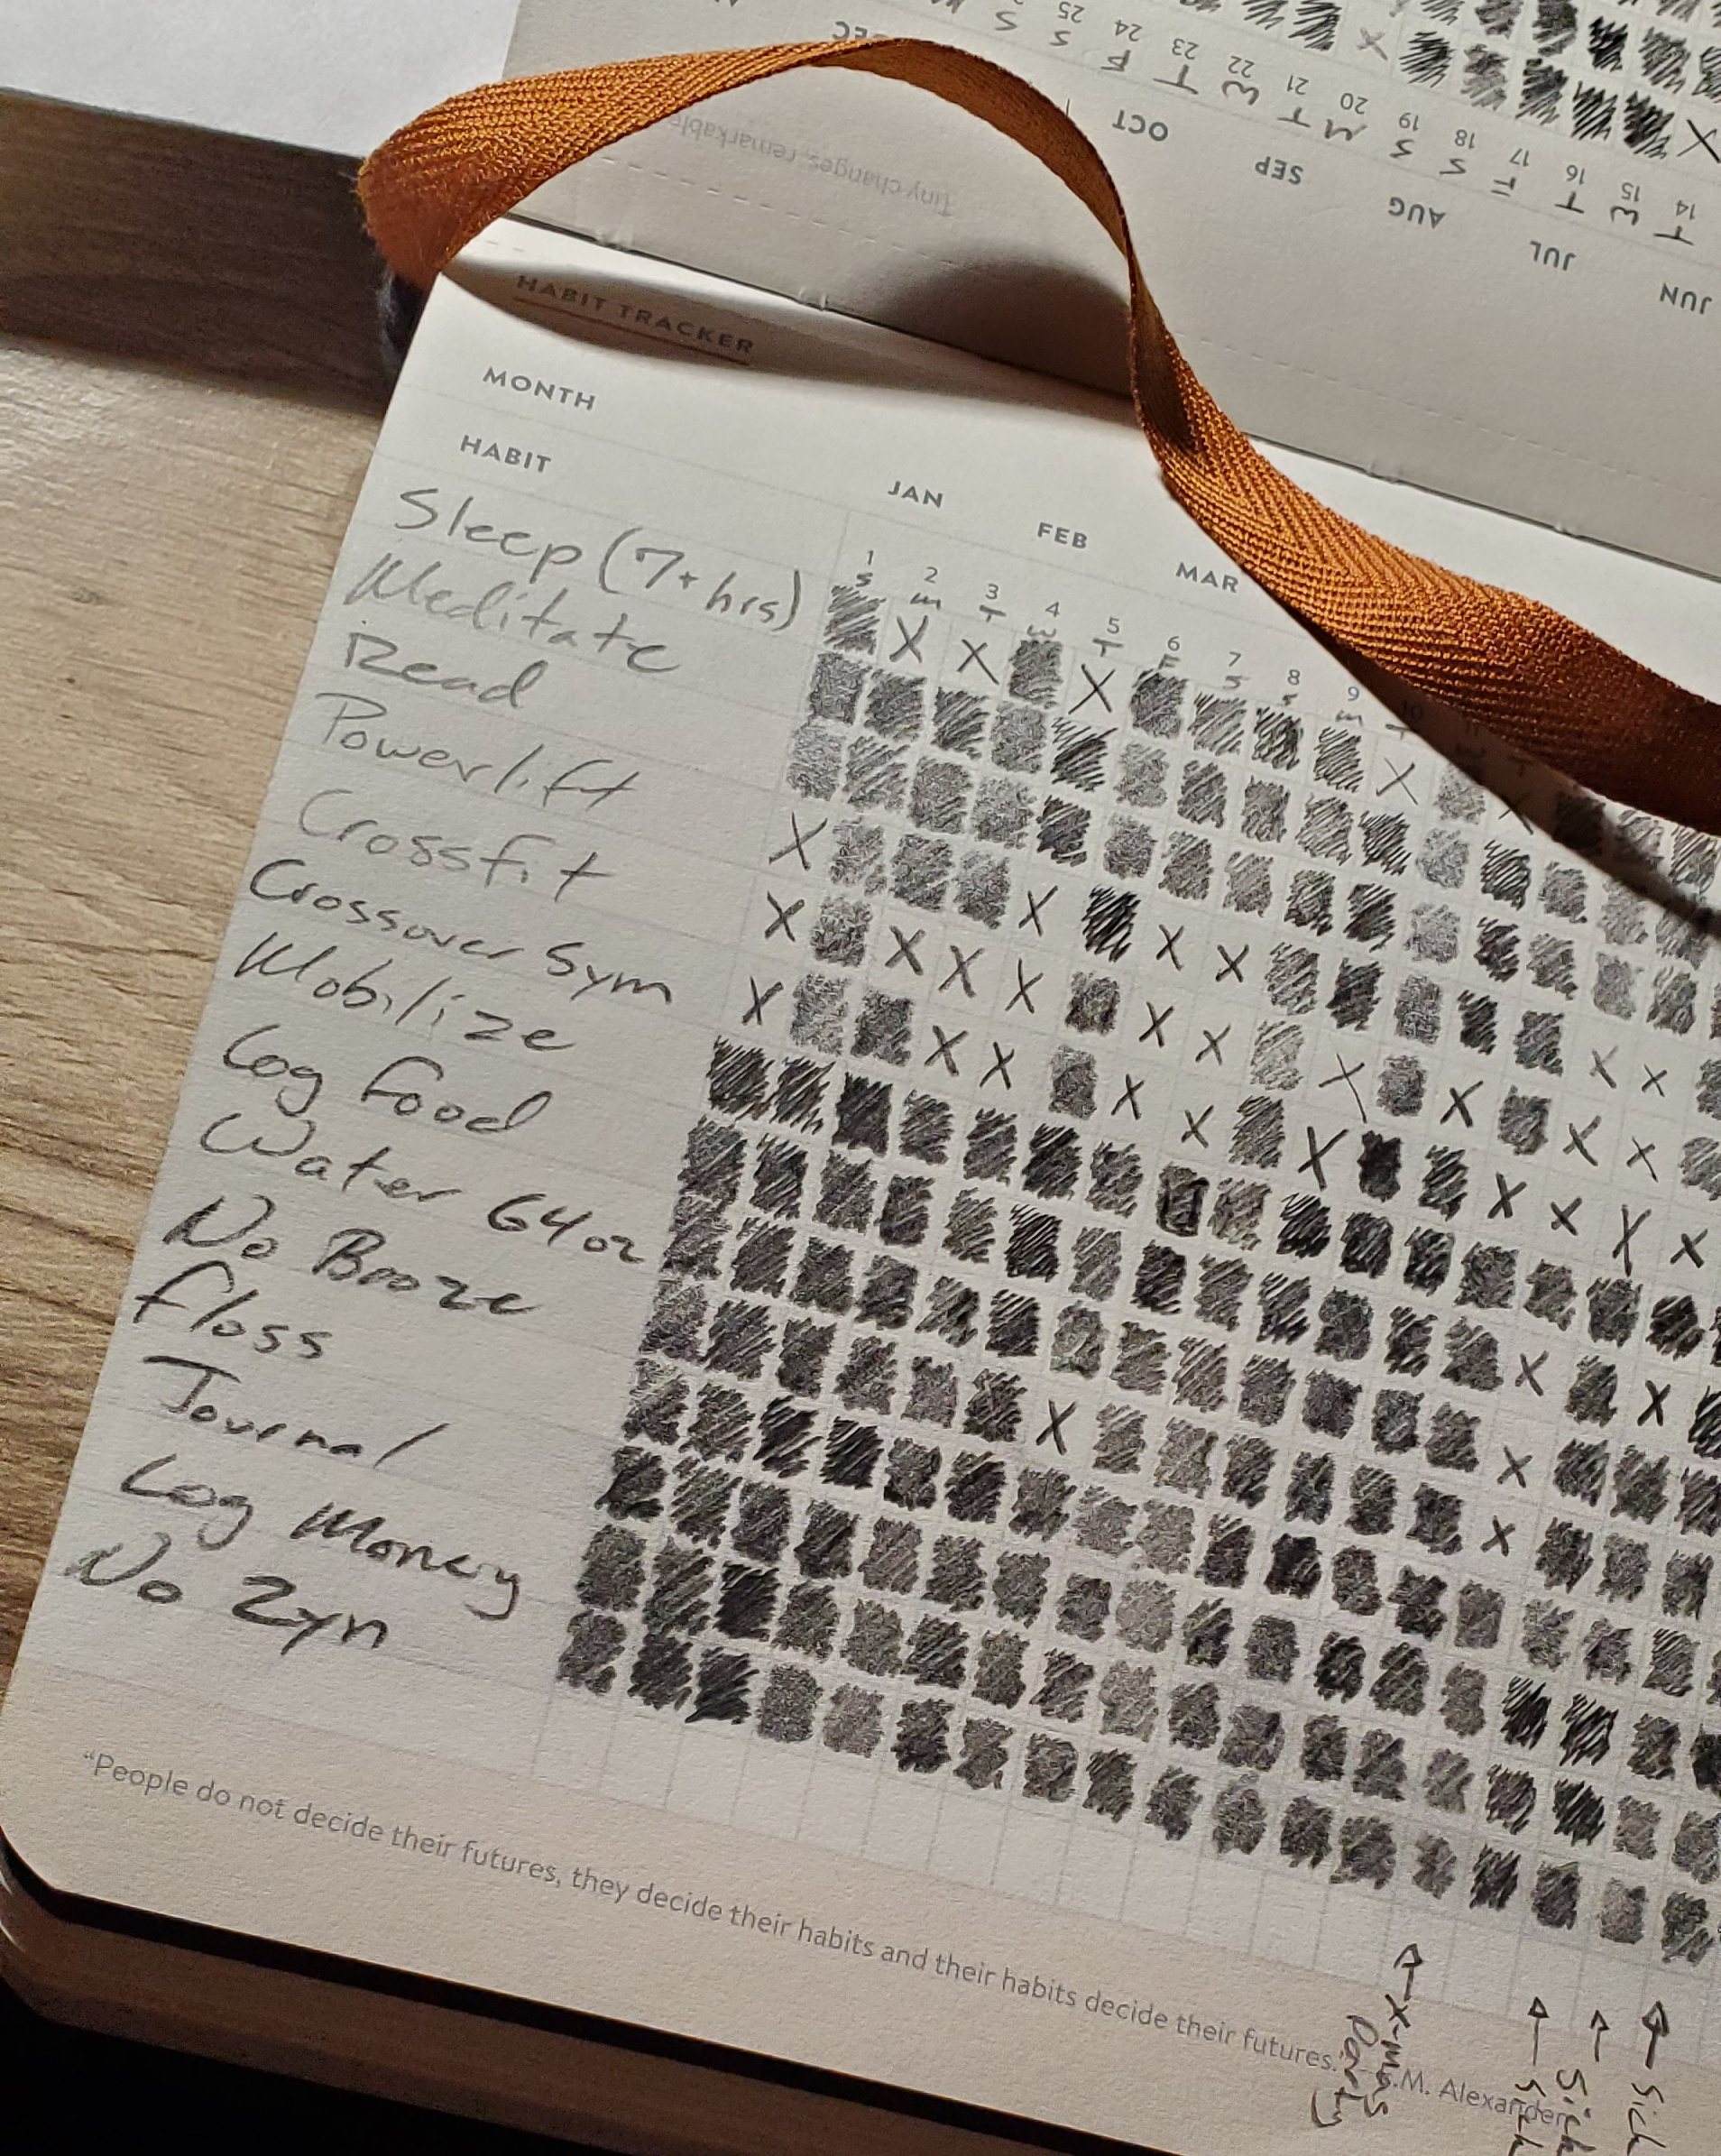 DEC
S S F T W T M S S F T W T
25 24 23 22 21 20 19 18 17 16 15 14
OCT SEP AUG JUL JUN
Tiny changes, remarkable
HABIT TRACKER
MONTH JAN FEB MAR
HABIT 1 2 3 4 5 6 7 8 9 10
S M T W T F S S M T
Sleep (7+ hrs)
Meditate
Read
Powerlift
Crossfit
Crossover Sym
Mobilize
Log Food
Water 64oz
No Booze
Floss
Journal
Log Money
No Zyn
"People do not decide their futures, they decide their habits and their habits decide their futures."
.M. Alexander
X-mas
Party
Sick
Sick
Sick